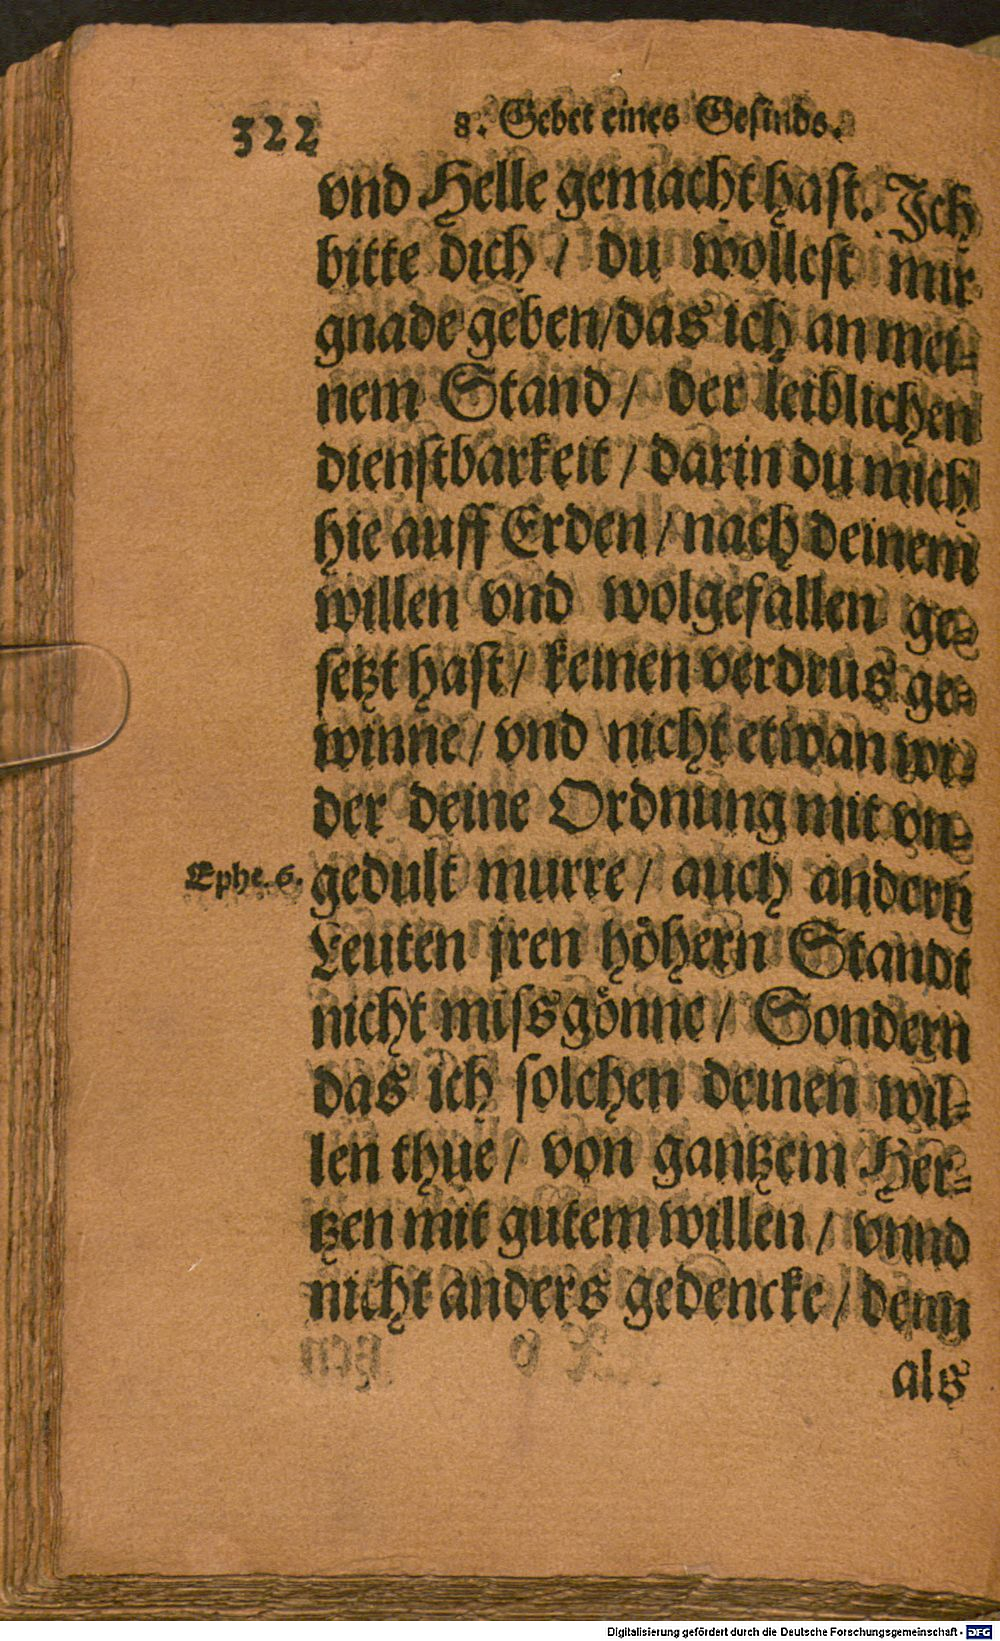 322 8. Gebet eines Gesinds.
vnd Helle gemacht hast. Jch
bitte dich / du wollest mir
gnade geben/das ich an mei-
nem Stand / der leiblichen
dienstbarkeit / darin du mich
hie auff Erden / nach deinem
willen vnd wolgefallen ge-
setzt hast / keinen verdrus ge-
winne / vnd nicht etwan wi-
der deine Ordnung mit vn-
Ephe. 6. gedult murre / auch andern
Leuten jren höhern Standt
nicht missgönne / Sondern
das ich solchen deinen wil-
len thue / von gantzem Her-
tzen mit gutem willen / vnnd
nicht anders gedencke / denn
als
Digitalisierung gefördert durch die Deutsche Forschungsgemeinschaft - DFG